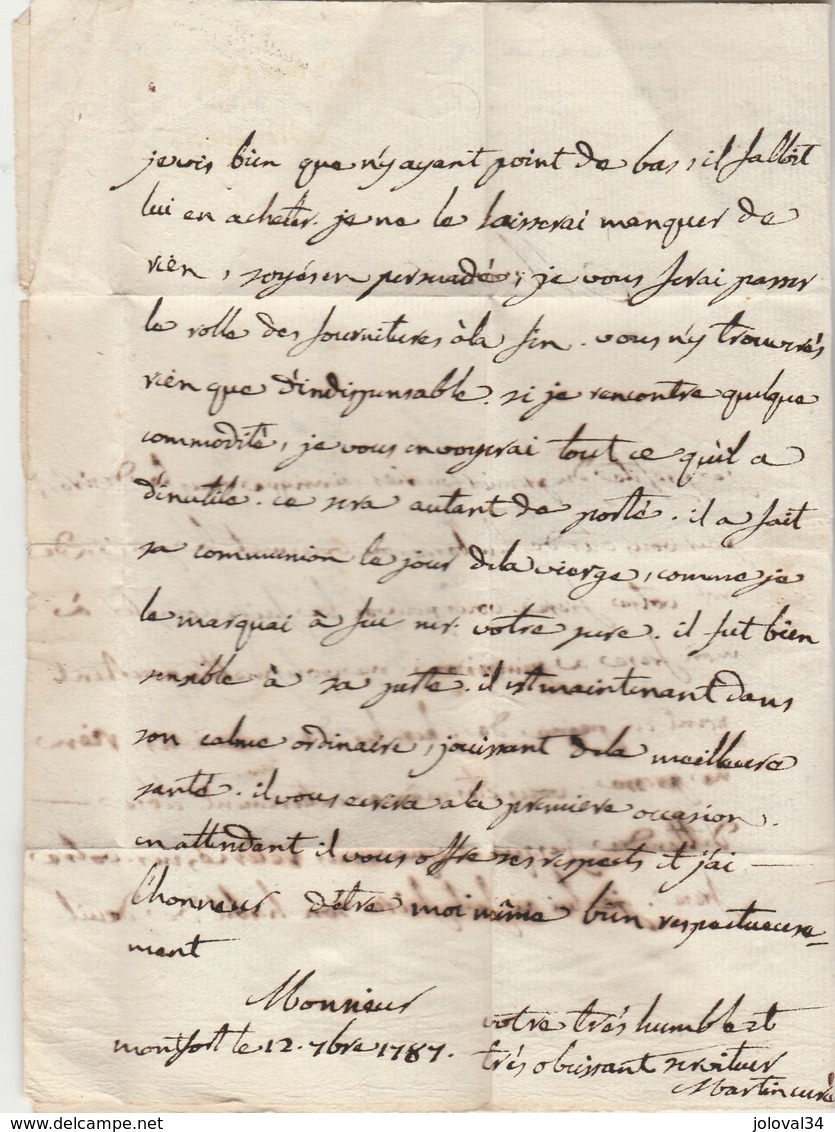 je vois bien que n'y ayant point de bas, il falloit
lui en acheter. je ne le laisserai manquer de
rien, soyés en persuadé, je vous ferai passer
le rolle des fournitures à la fin. vous n'y trouverés
rien que d'indispensable. si je rencontre quelque
commodité, je vous envoyerai tout ce qu'il a
d'inutile. ce sera autant de porté. il a fait
sa communion le jour de la vierge, comme je
le marquai à feu mr. votre pere. il fut bien
sensible à sa perte. il est maintenant dans
son calme ordinaire, jouissant de la meilleure
santé. il vous ecrira a la premiere occasion.
en attendant il vous offre ses respects et j'ai
l'honneur d'être moi même bien respectueuse=
ment
Monsieur
votre trés humble et
montfort le 12. 7bre 1787. trés obeissant serviteur
Martin curé
joloval34